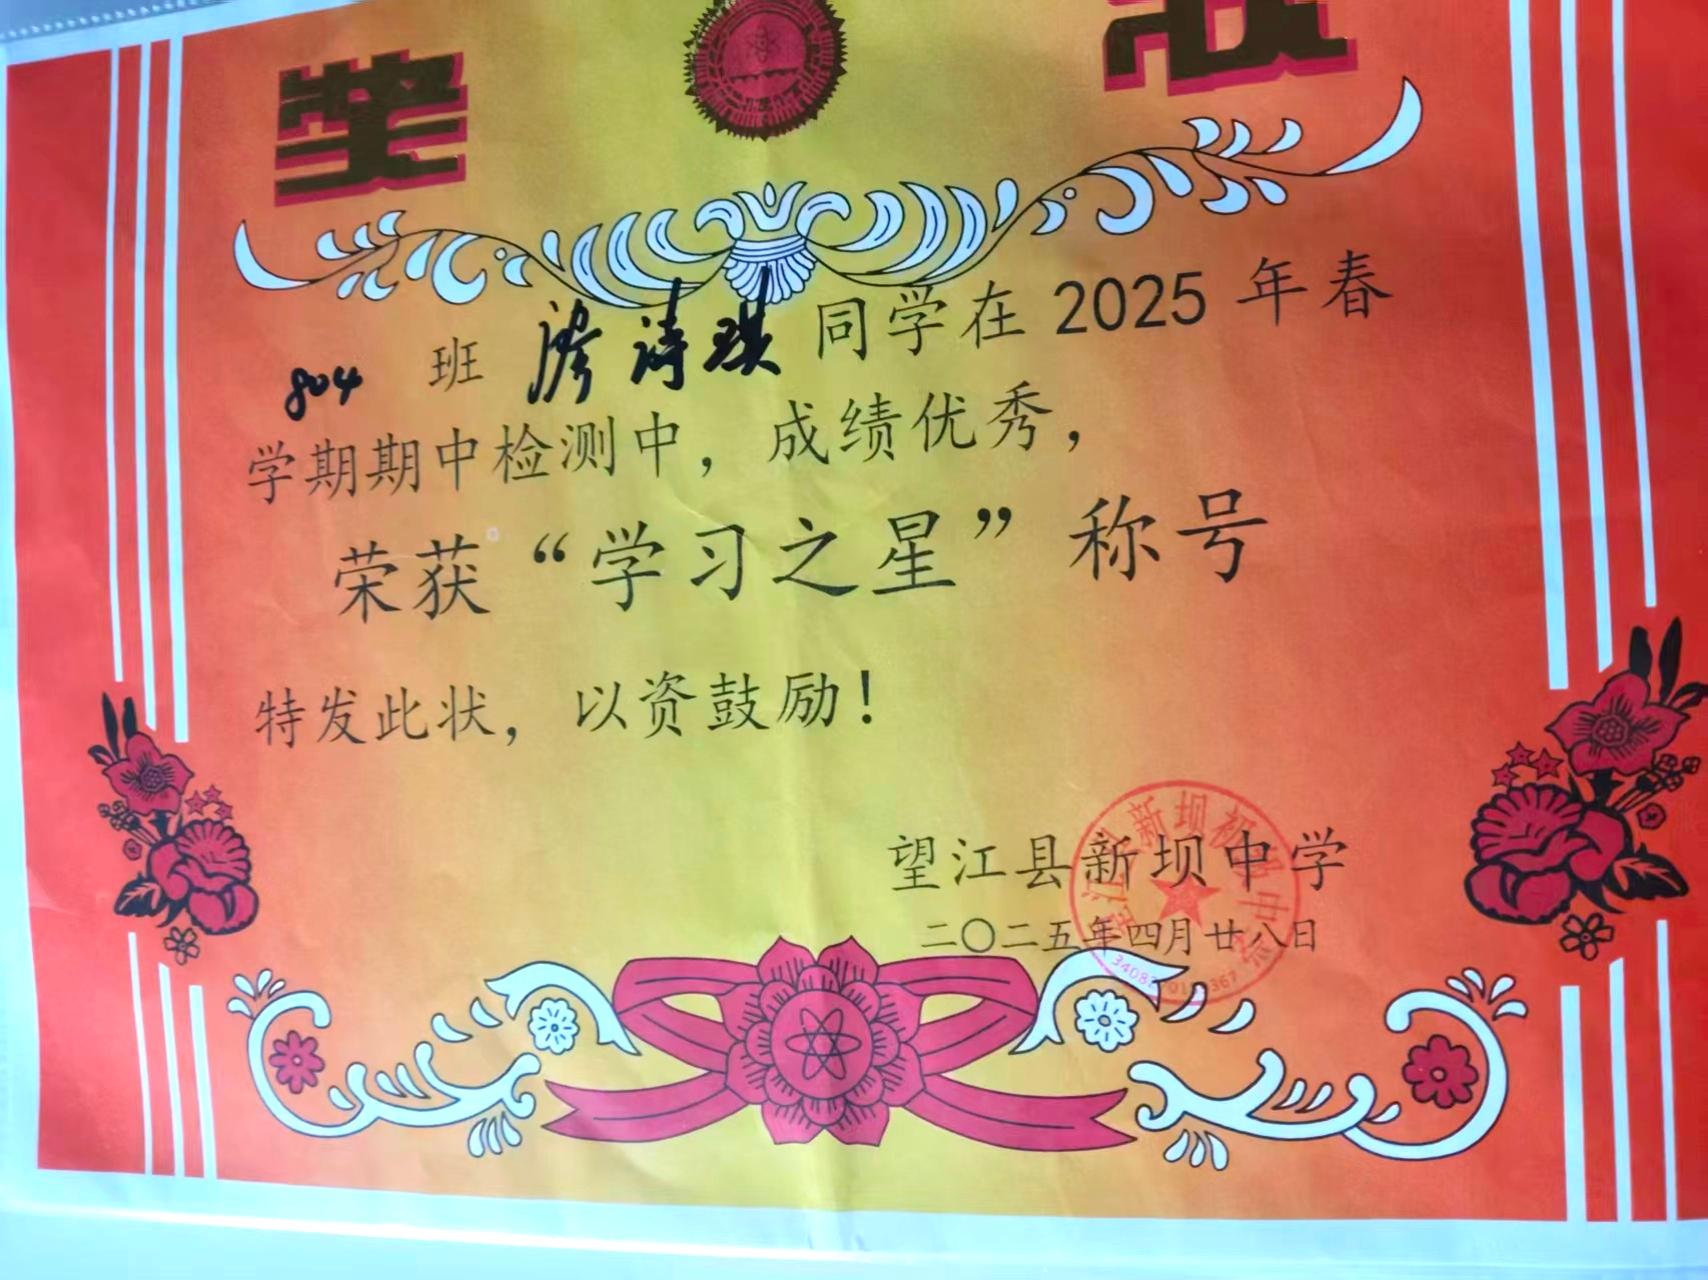 奖状
804 班 廖诗琪 同学在 2025 年春
学期期中检测中，成绩优秀，
荣获“学习之星”称号
特发此状，以资鼓励！
望江县新坝中学
二〇二五年四月廿八日